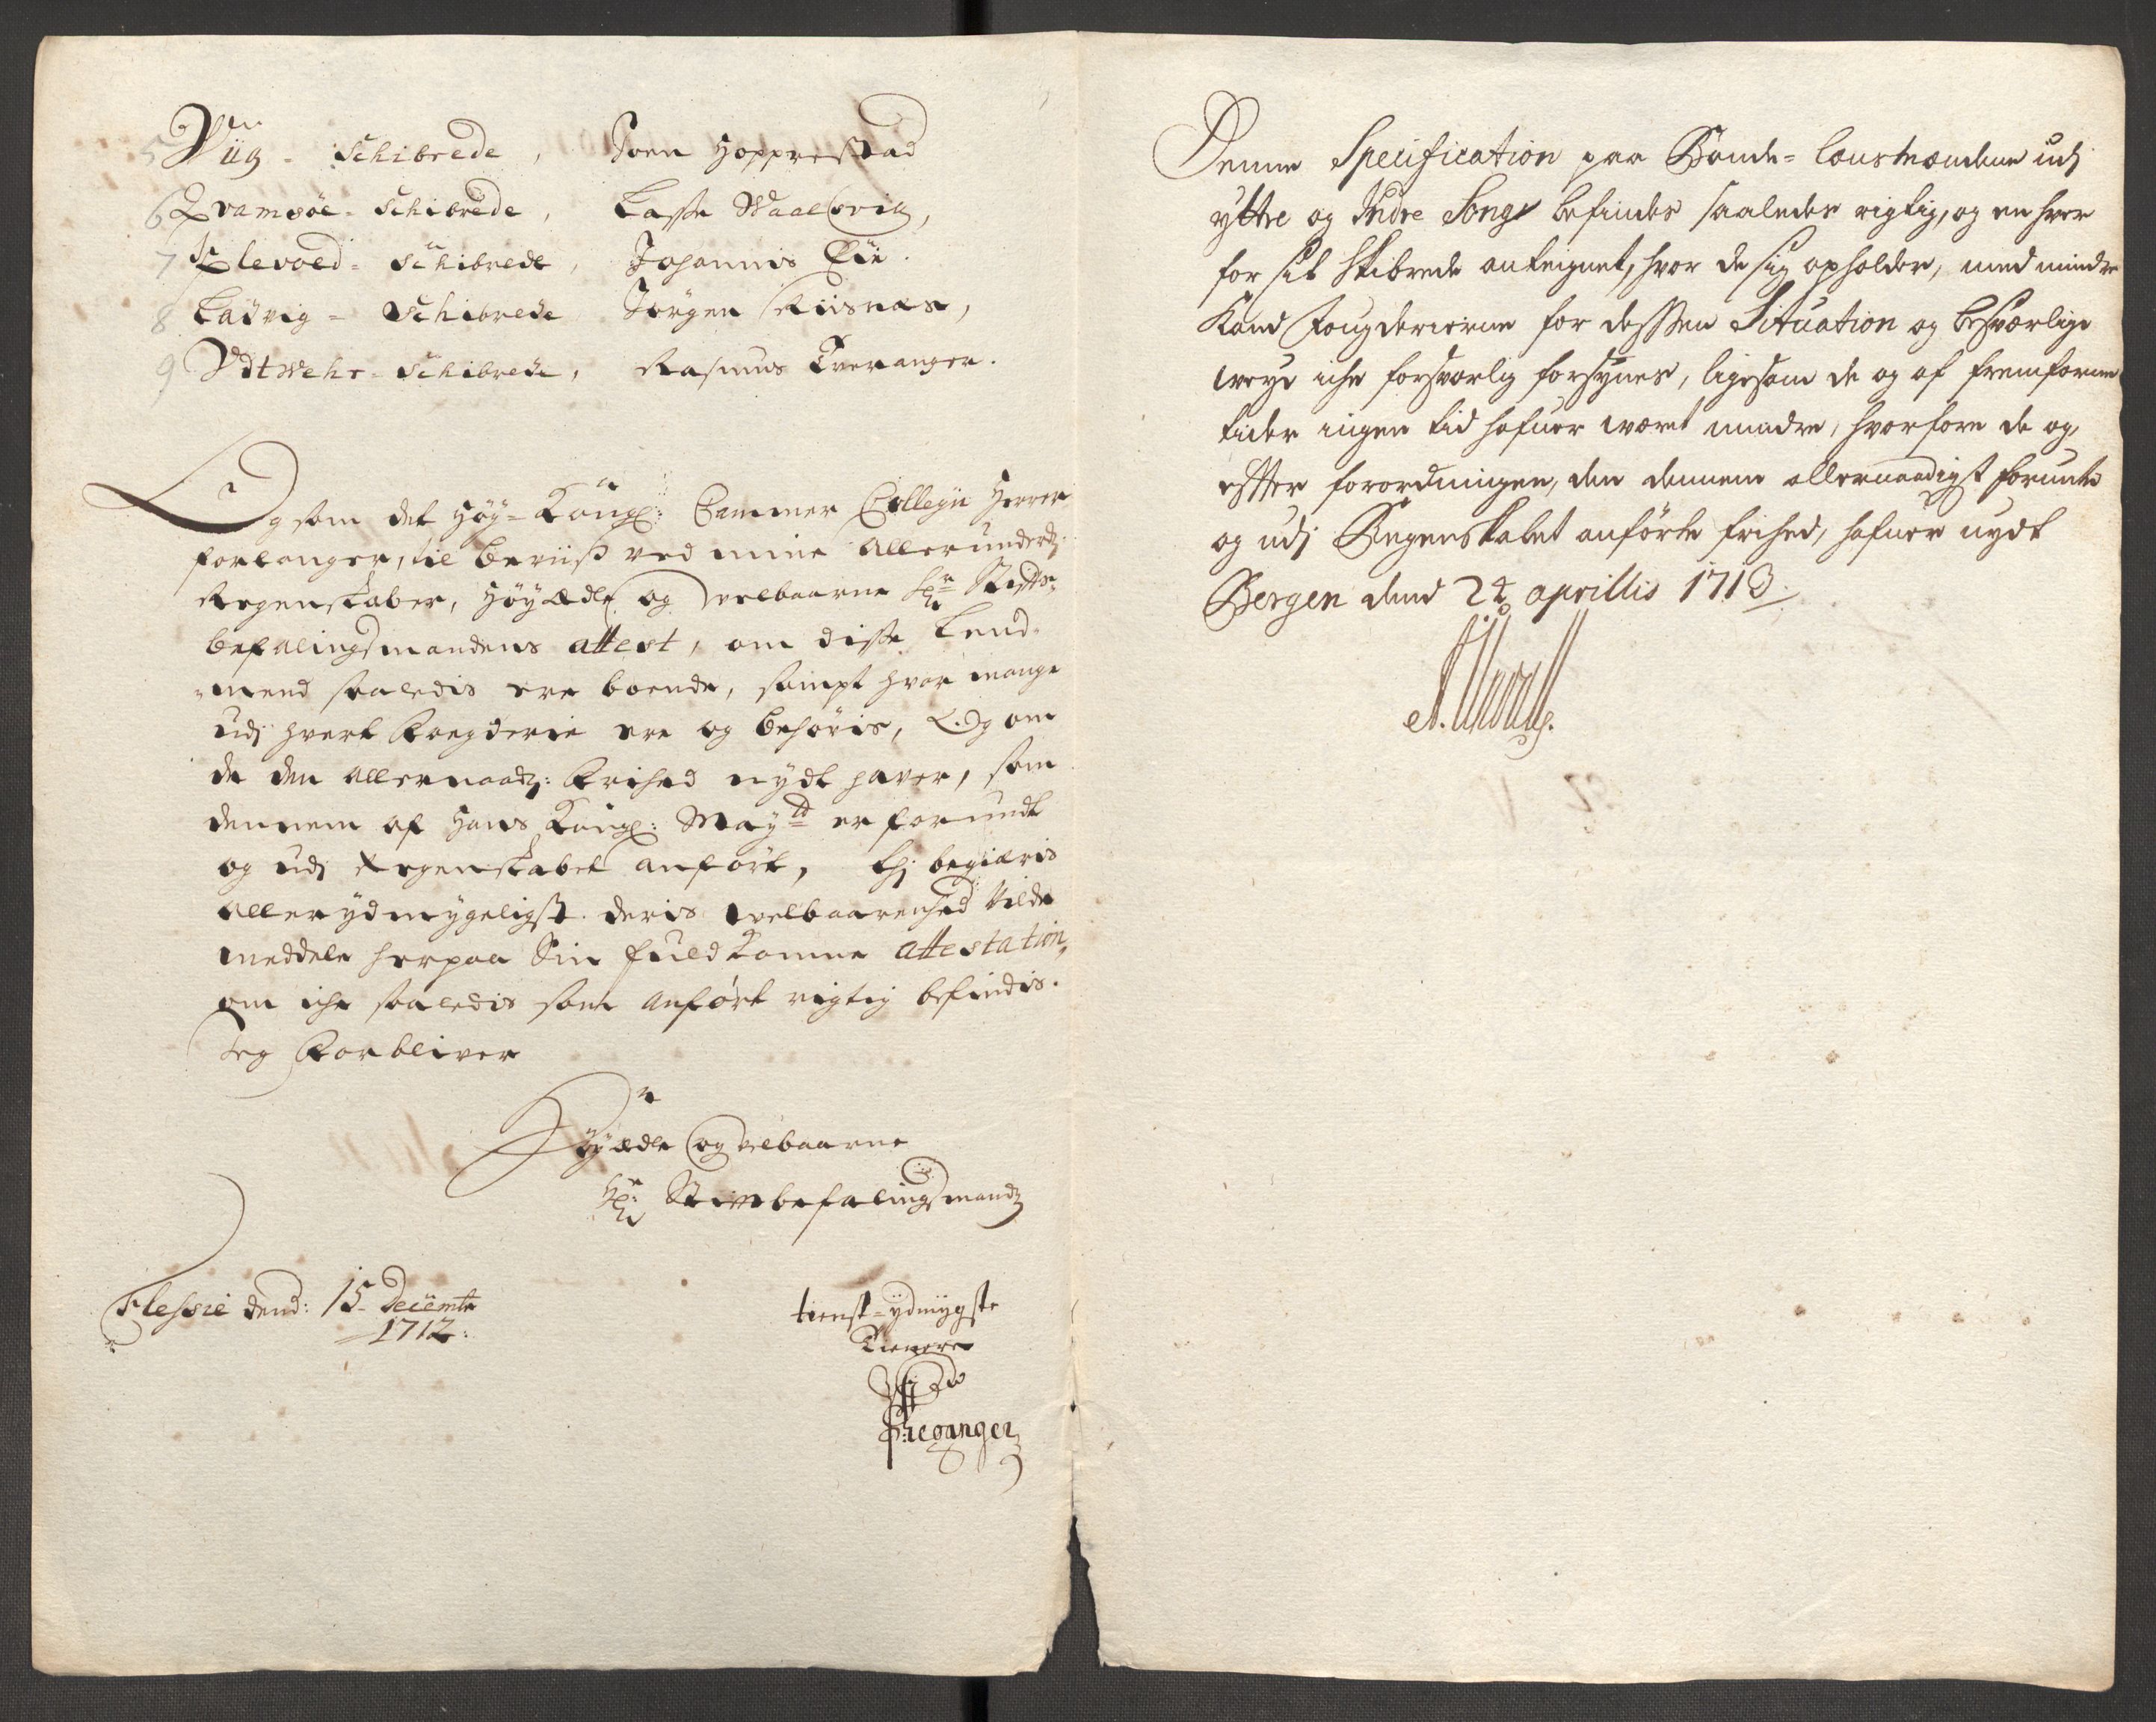 5 Viig - Schibrede, Joen Hopprestad
6 Qvamsøe - Schibrede, Lasse Waalsvig,
7 Klevold - Schibrede, Johannis Eie.
8 Ladvig - Schibrede Jørgen Riisnæs,
9 Vdtwehr - Schibrede, Rasmus Tveranger.
Og som det Høy-Kongl: Cammer Collegii Herrer
forlanger, til beviiß ved mine allerunderd:
Regenskaber, Høyædle og velbaarne Hr: Stifts-
befalingsmandens attest, om disse Lend-
mend saaledis ere boende, sampt hvor mange
udj hvert fogderie ere og behøris, Og om
de den allernaadg: frihed nydt haver, som
dennem af Hans Kongl: Mayt er forundt
og udj Regenskabet anført, thj begiæris
allerydmygeligst deris velbaarenhed vilde
meddele herpaa sin fuldkomne attestation,
om iche saaledis som anført rigtig befindis.
Jeg forbliver
Høyædle og velbaarne
Hr: Stiftsbefalingsmandz
Flessie dend: 15 Decembr
1712:
tienst-ydmygste
Tienere
Denne Specification paa Bonde-Lensmændene udj
yttre og Indre Sogn befindes saaledes rigtig, og en hver
for sit Skibrede anteignet, hvor de sig opholder, med mindre
Kand Fougderierne for dessen Situation og besværlige
weye iche forsvarlig forsynes, ligesom de og af fremfarne
tider ingen tid hafuer været mindre, hvorfore de og,
efter forordningen, den dennem allernaadigst forunte
og udj Regenskabet anførte frihed, hafuer nydt
Bergen dend 24 aprillis 1713.